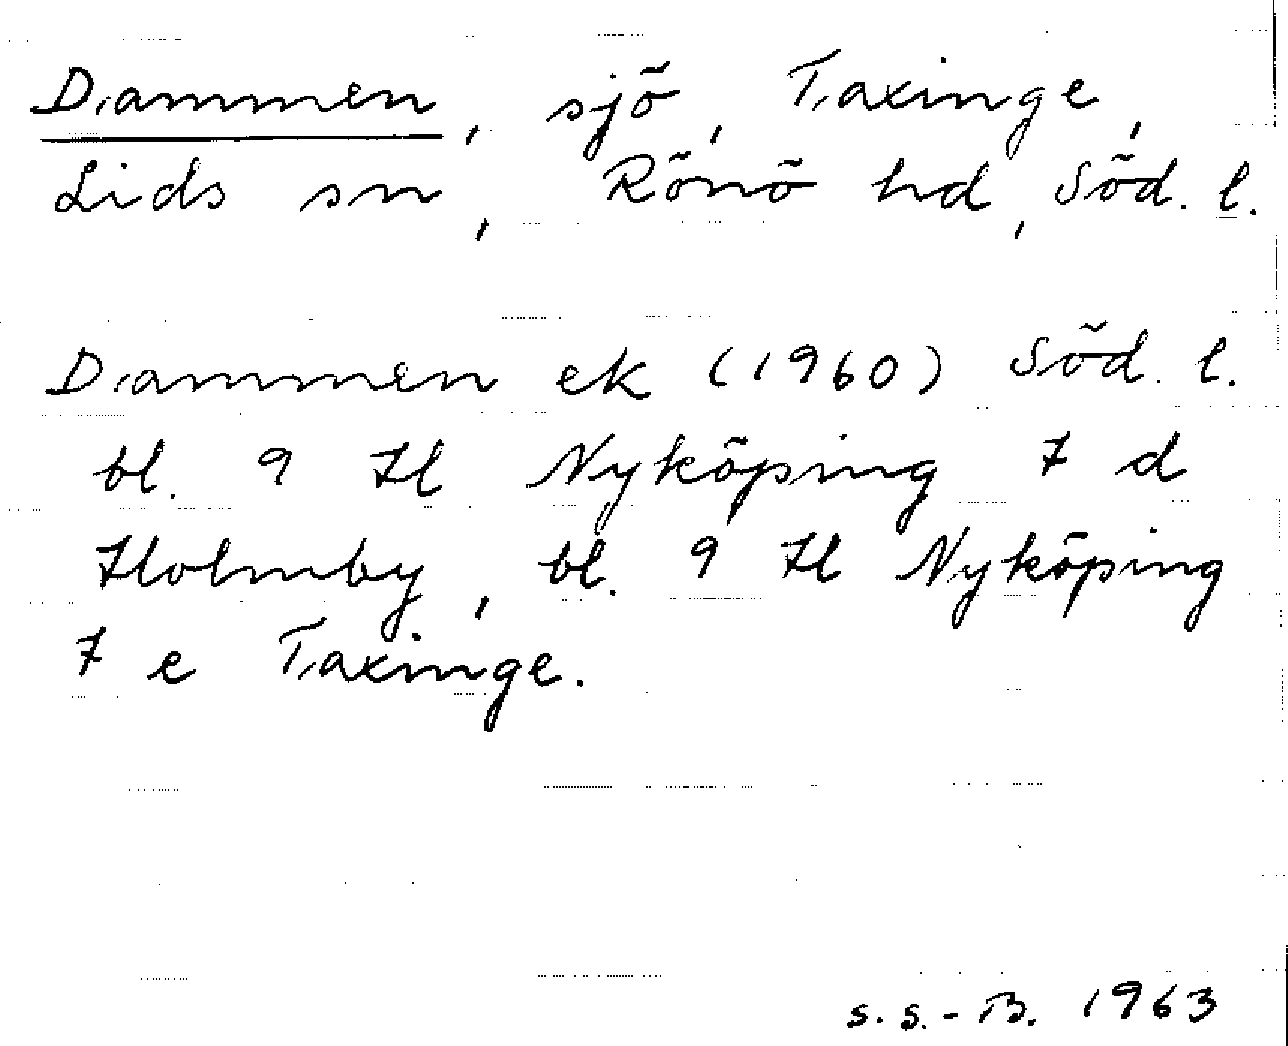 Dammen, sjö, Taxinge,
Lids sn, Rönö hd, Söd. l.
Dammen ek (1960) Söd. l.
bl. 9 H Nyköping 7 d
Holmby, bl. 9 H Nyköping
7 e Taxinge.
S.S.-B. 1963